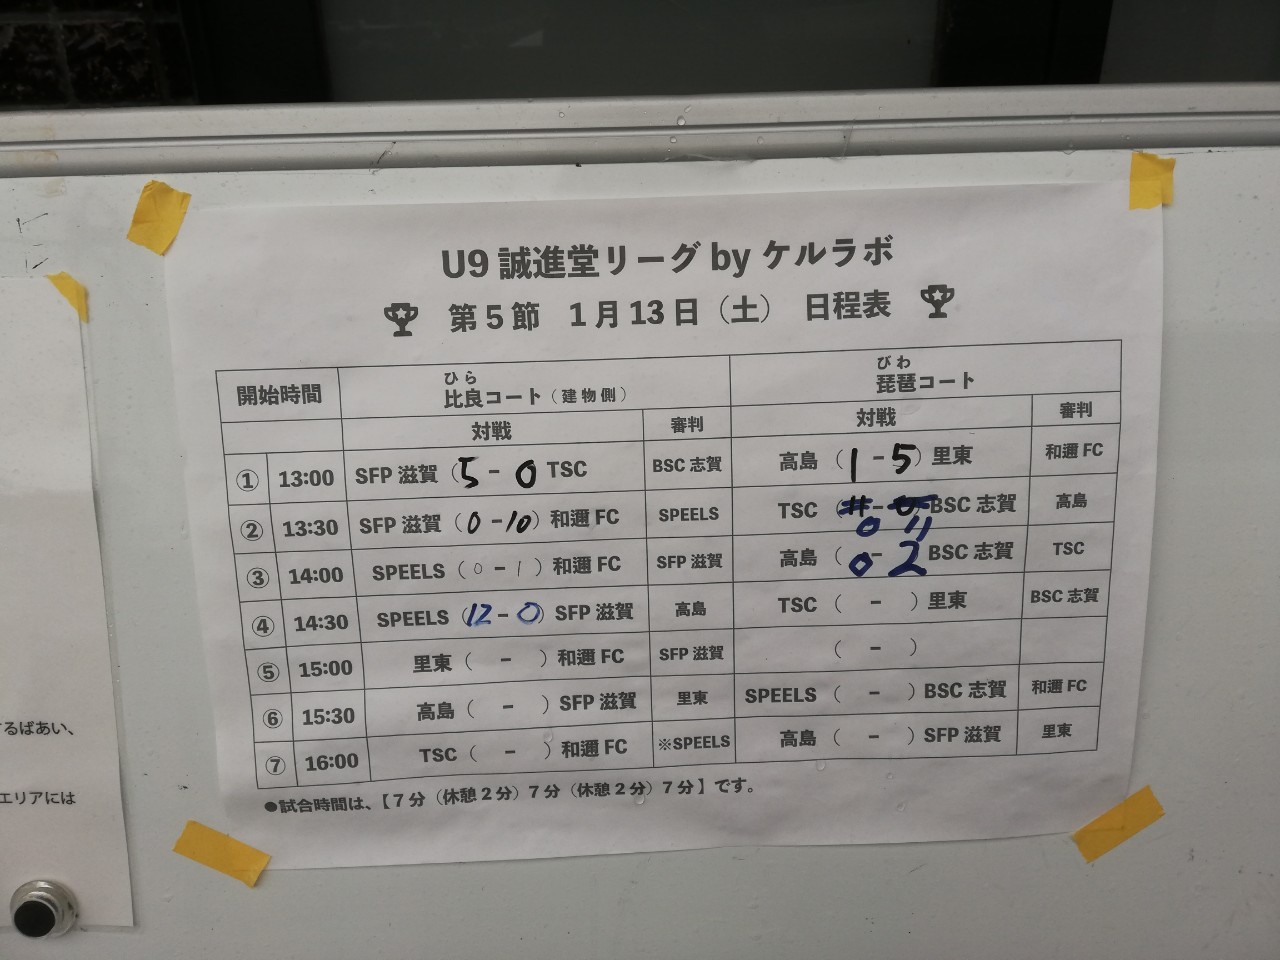 U9 誠進堂リーグ by ケルラボ
第5節 1月13日（土） 日程表
開始時間 比良コート（建物側） ひら 琵琶コート びわ
対戦 審判 対戦 審判
① 13:00 SFP 滋賀（5 - 0 TSC BSC 志賀 高島（1 - 5）里東 和邇 FC
② 13:30 SFP 滋賀（0 - 10）和邇 FC SPEELS TSC（11 - 0 BSC 志賀 高島
0 11
③ 14:00 SPEELS（0 - 1）和邇 FC SFP 滋賀 高島（0 - 2 BSC 志賀 TSC
④ 14:30 SPEELS（12 - 0）SFP 滋賀 高島 TSC（ - ）里東 BSC 志賀
⑤ 15:00 里東（ - ）和邇 FC SFP 滋賀 （ - ）
⑥ 15:30 高島（ - ）SFP 滋賀 里東 SPEELS（ - ）BSC 志賀 和邇 FC
⑦ 16:00 TSC（ - ）和邇 FC ※SPEELS 高島（ - ）SFP 滋賀 里東
●試合時間は、【7分（休憩2分）7分（休憩2分）7分】です。
るばあい、
エリアには